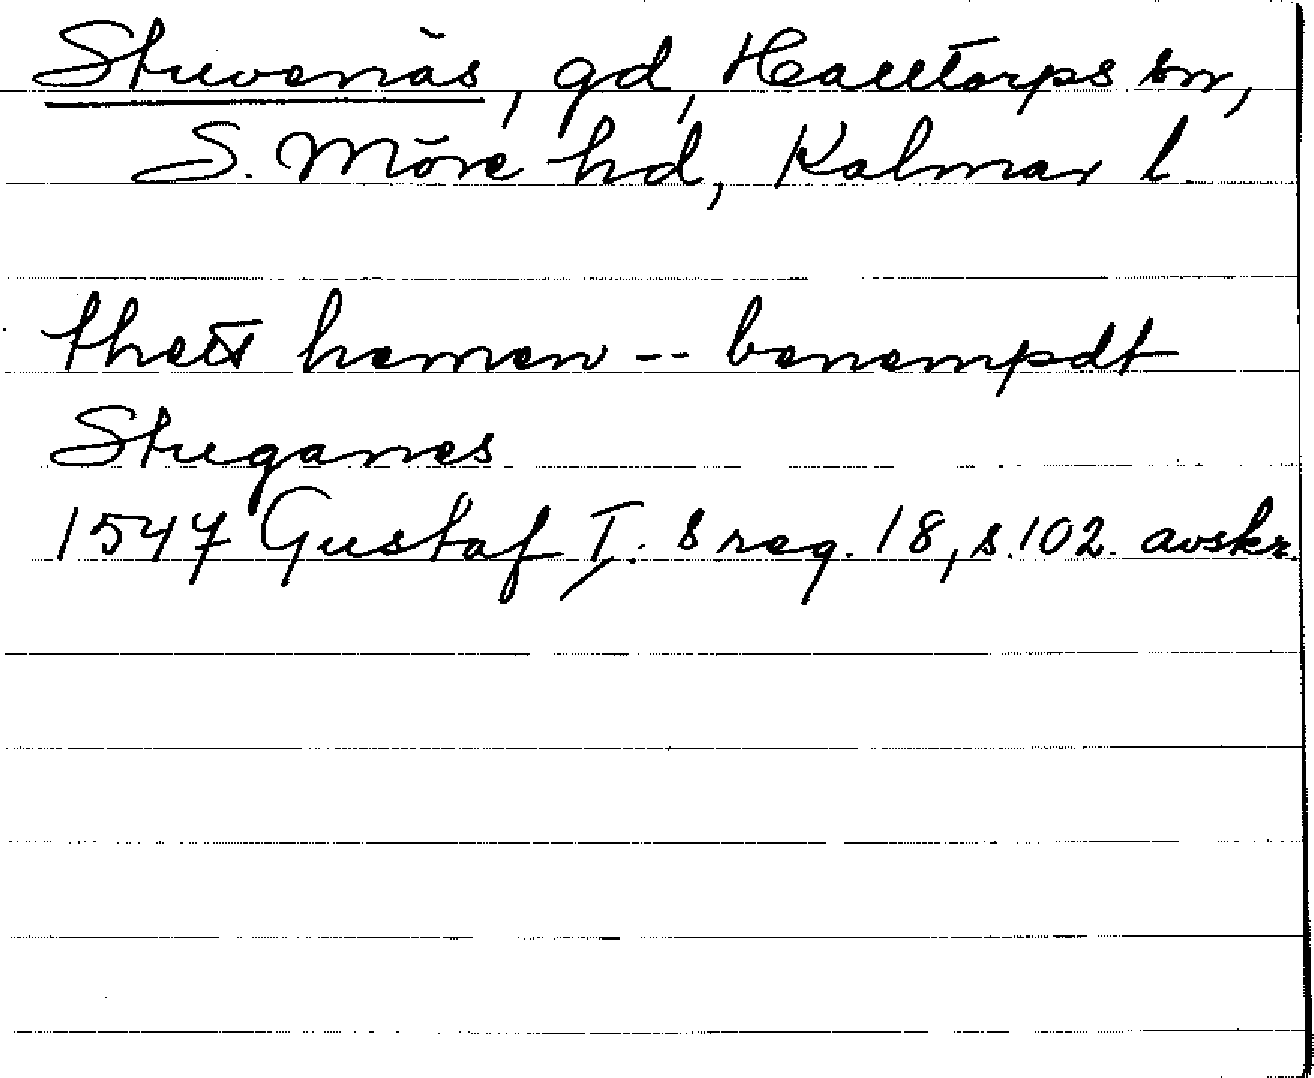 Stuvenäs, gd, Halltorps sn,
S. Möre hd, Kalmar l.
thett hemen -- benempdt
Stuganes
1547 Gustaf I:s reg. 18, s. 102. avskr.